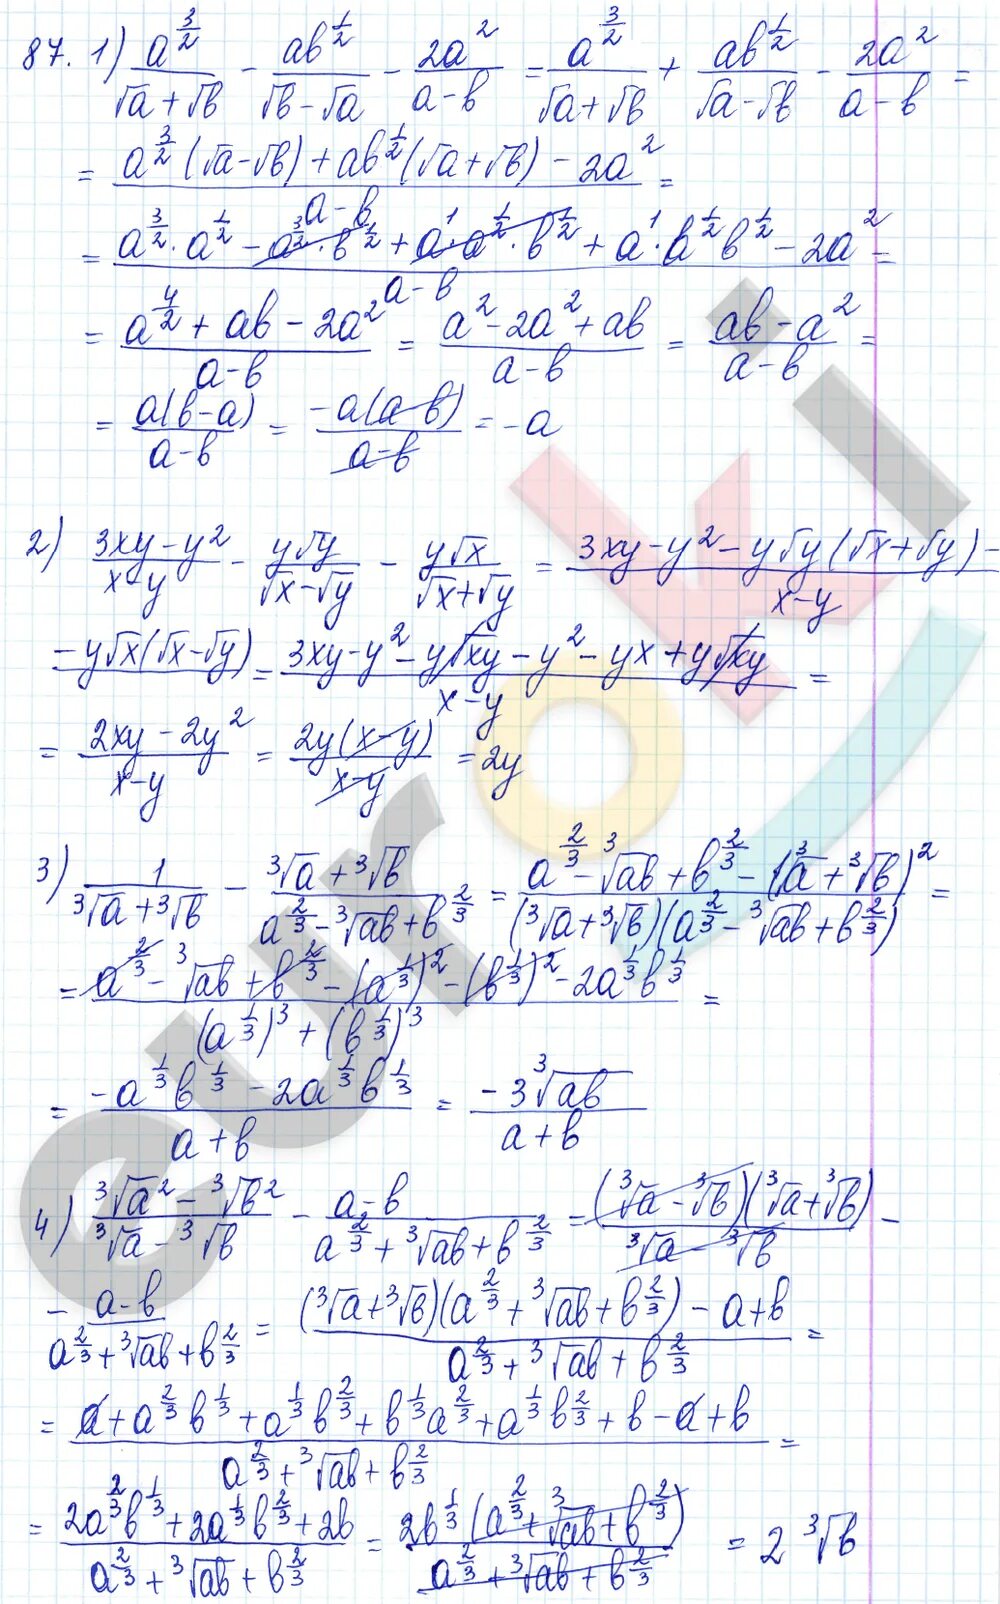 87. 1) a^(3/2)/(√a+√b) - ab^(1/2)/(√b-√a) - 2a^2/(a-b) = a^(3/2)/(√a+√b) + ab^(1/2)/(√a-√b) - 2a^2/(a-b) =
= (a^(3/2)(√a-√b)+ab^(1/2)(√a+√b)-2a^2)/(a-b) =
= (a^(3/2)·a^(1/2) - a^(3/2)·b^(1/2) + a^1·a^(1/2)·b^(1/2) + a^1·b^(1/2)b^(1/2) - 2a^2)/(a-b) =
= (a^(4/2)+ab-2a^2)/(a-b) = (a^2-2a^2+ab)/(a-b) = (ab-a^2)/(a-b) =
= a(b-a)/(a-b) = -a(a-b)/(a-b) = -a
2) (3xy-y^2)/(x-y) - y√y/(√x-√y) - y√x/(√x+√y) = (3xy-y^2-y√y(√x+√y)-)/(x-y)
-y√x(√x-√y) = (3xy-y^2-y√xy-y^2-yx+y√xy)/(x-y) =
= (2xy-2y^2)/(x-y) = 2y(x-y)/(x-y) = 2y
3) 1/(∛a+∛b) - (∛a+∛b)/(a^(2/3)-∛ab+b^(2/3)) = (a^(2/3)-∛ab+b^(2/3)-(∛a+∛b)^2)/((∛a+∛b)(a^(2/3)-∛ab+b^(2/3))) =
= (a^(2/3)-∛ab+b^(2/3)-(a^(1/3))^2-(b^(1/3))^2-2a^(1/3)b^(1/3))/((a^(1/3))^3+(b^(1/3))^3) =
= (-a^(1/3)b^(1/3)-2a^(1/3)b^(1/3))/(a+b) = -3∛ab/(a+b)
4) (∛a^2-∛b^2)/(∛a-∛b) - (a-b)/(a^(2/3)+∛ab+b^(2/3)) = (∛a-∛b)(∛a+∛b)/(∛a-∛b) -
- (a-b)/(a^(2/3)+∛ab+b^(2/3)) = ((∛a+∛b)(a^(2/3)+∛ab+b^(2/3))-a+b)/(a^(2/3)+∛ab+b^(2/3)) =
= (a+a^(2/3)b^(1/3)+a^(1/3)b^(2/3)+b^(1/3)a^(2/3)+a^(1/3)b^(2/3)+b-a+b)/(a^(2/3)+∛ab+b^(2/3)) =
= (2a^(2/3)b^(1/3)+2a^(1/3)b^(2/3)+2b)/(a^(2/3)+∛ab+b^(2/3)) = 2b^(1/3)(a^(2/3)+∛ab+b^(2/3))/(a^(2/3)+∛ab+b^(2/3)) = 2∛b
euroki